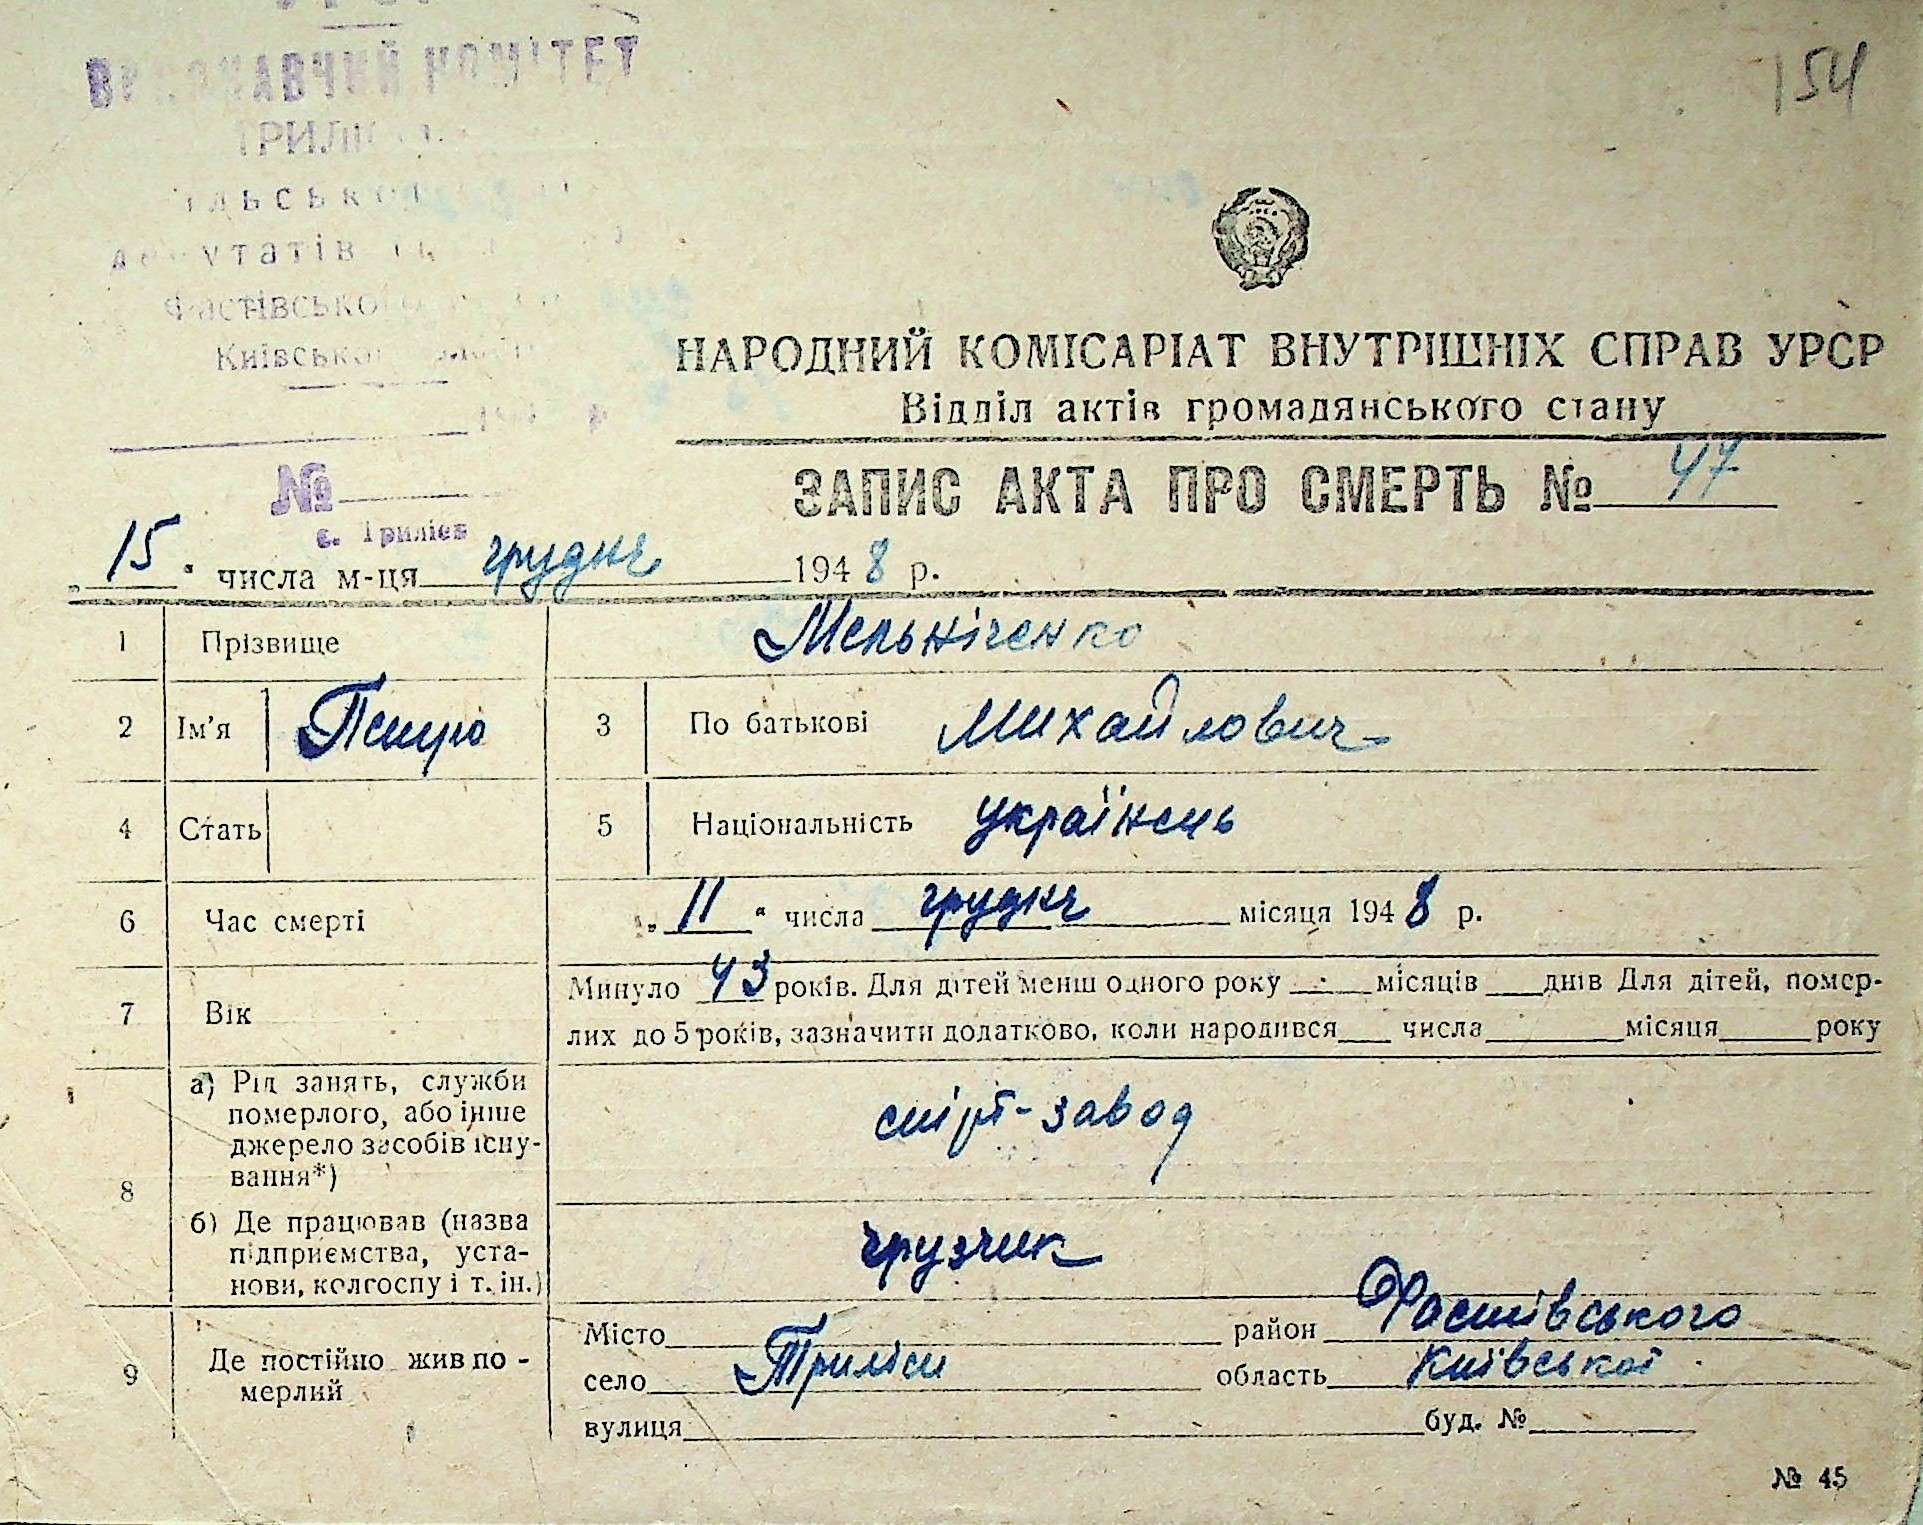 154
КОМІТЕТ
Київської
№
с. Триліси
НАРОДНИЙ КОМІСАРІАТ ВНУТРІШНІХ СПРАВ УРСР
Відділ актів громадянського стану
ЗАПИС АКТА ПРО СМЕРТЬ № 47
„15“ числа м-ця грудня 1948 р.
1 Прізвище Мельніченко
2 Ім’я Петро 3 По батькові Михайлович
4 Стать 5 Національність українець
6 Час смерті „11“ числа грудня місяця 1948 р.
7 Вік Минуло 43 років. Для дітей менш одного року місяців днів Для дітей, помер-
лих до 5 років, зазначити додатково, коли народився числа місяця року
8 а) Рід занять, служби
померлого, або інше
джерело засобів існу-
вання*)
спірт-завод
б) Де працював (назва
підприємства, уста-
нови, колгоспу і т. ін.)
грузчик
9 Де постійно жив по-
мерлий
Місто район Фастівського
село Триліси область Київської
вулиця буд. №
№ 45